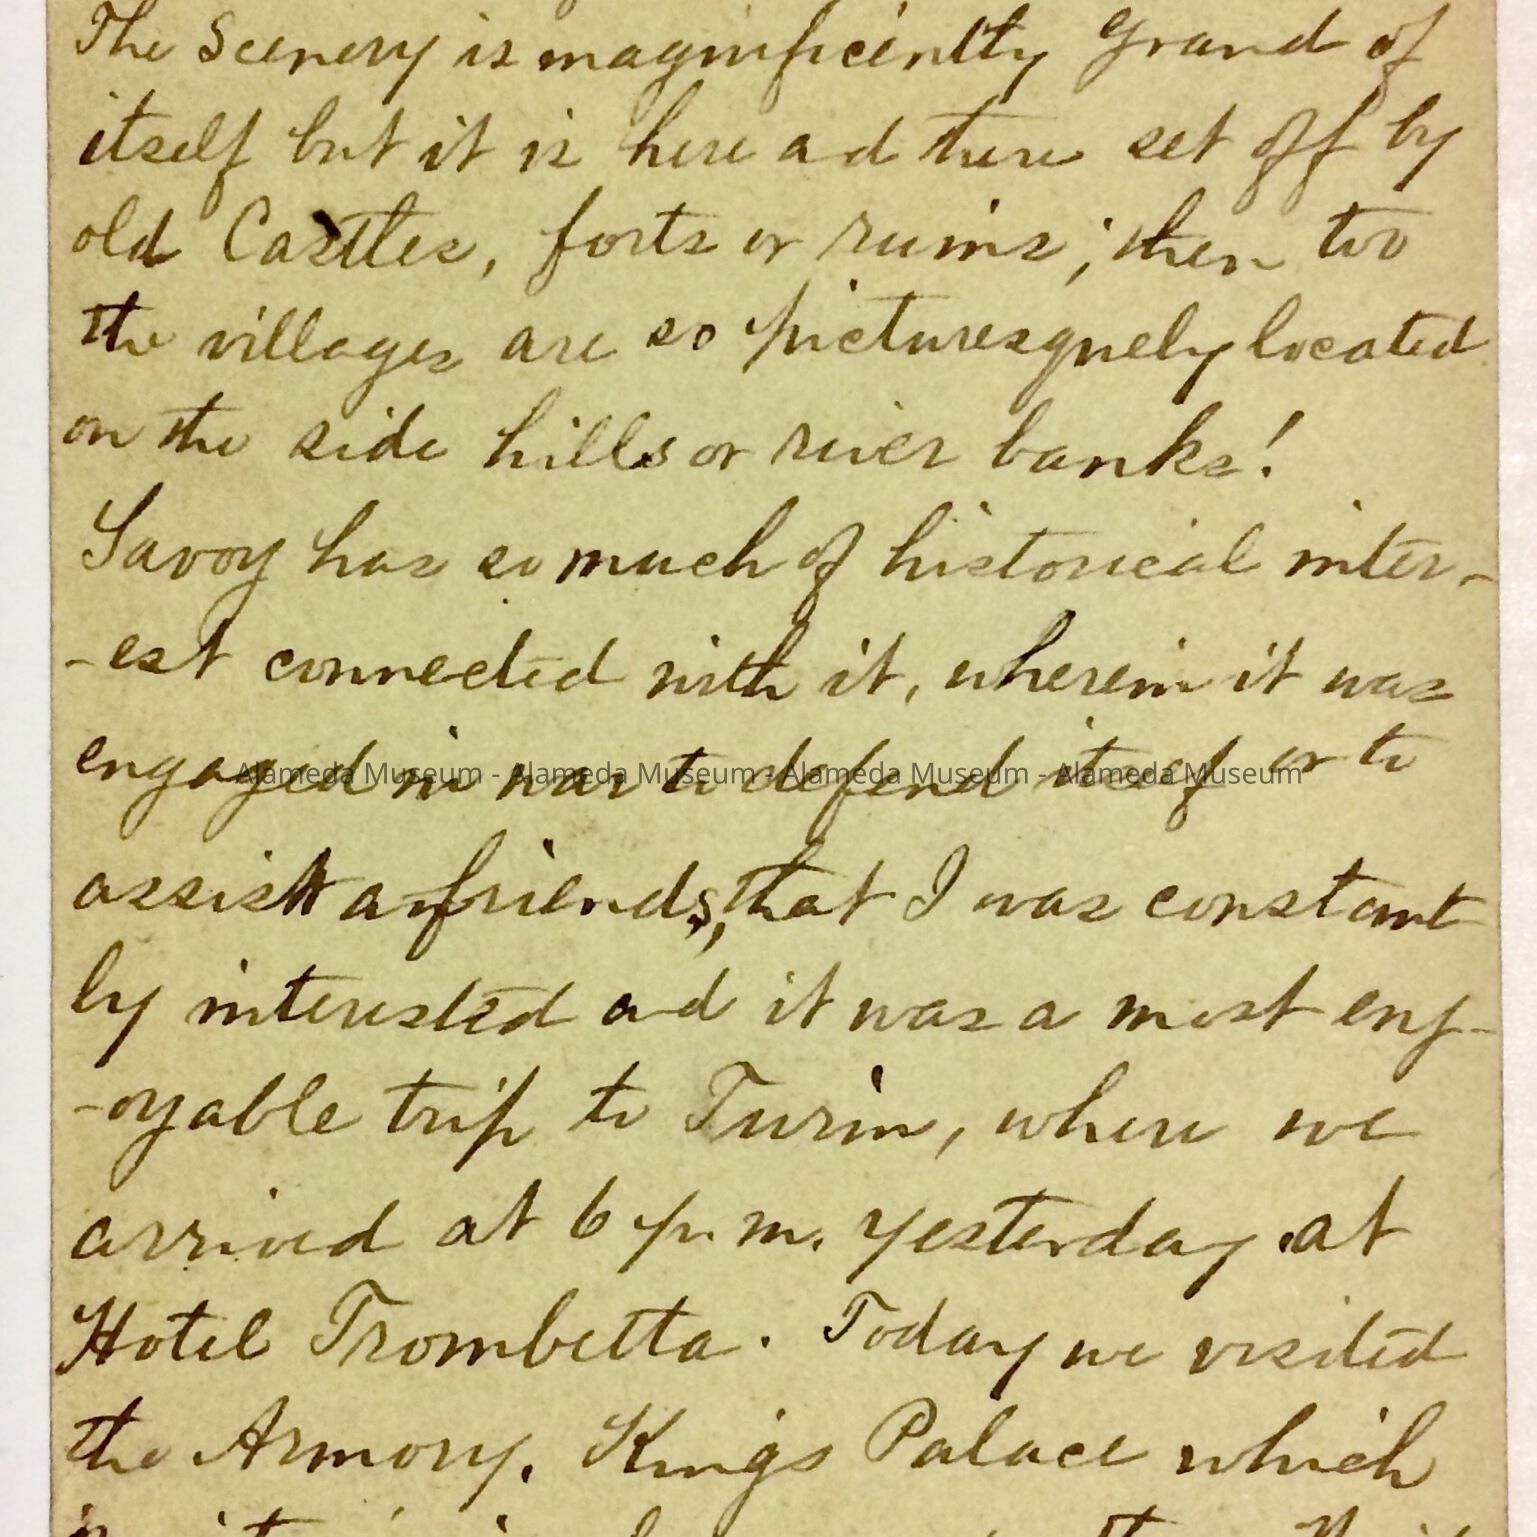 The Scenery is magnificently grand of
itself but it is here and there set off by
old Castles, forts or ruins; then too
the villages are so picturesquely located
on the side hills or river banks!
Savoy has so much of historical inter-
-est connected with it, wherein it was
engaged in war to defend itself or to
Alameda Museum - Alameda Museum - Alameda Museum - Alameda Museum
assist friends, that I was constant
ly interested and it was a most enj-
-oyable trip to Turin, where we
arrived at 6 p.m. yesterday at
Hotel Trombetta. Today we visited
the Armory, Kings Palace which